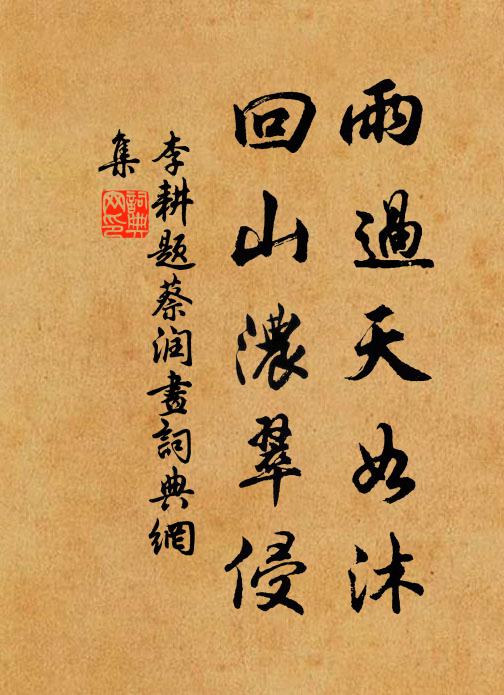 雨過天如沐
回山濃翠侵
李耕题蔡润畫詞典網
集
詞典网印